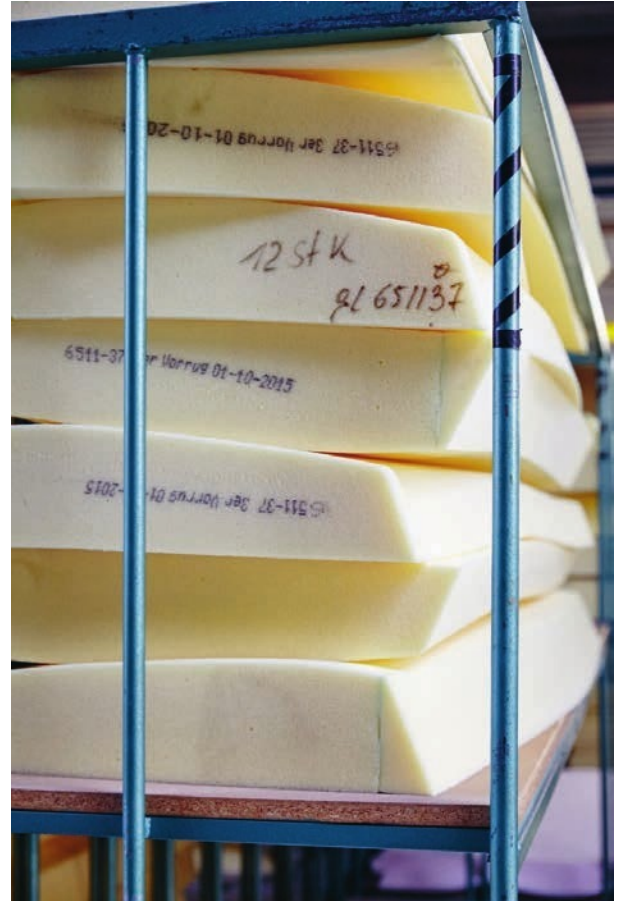 6511-37 3er Vorrug 01-10-20
12 stK
gl 651137
6511-37 er Vorrug 01-10-2015
6511-37 3er Vorrug 01- -2015